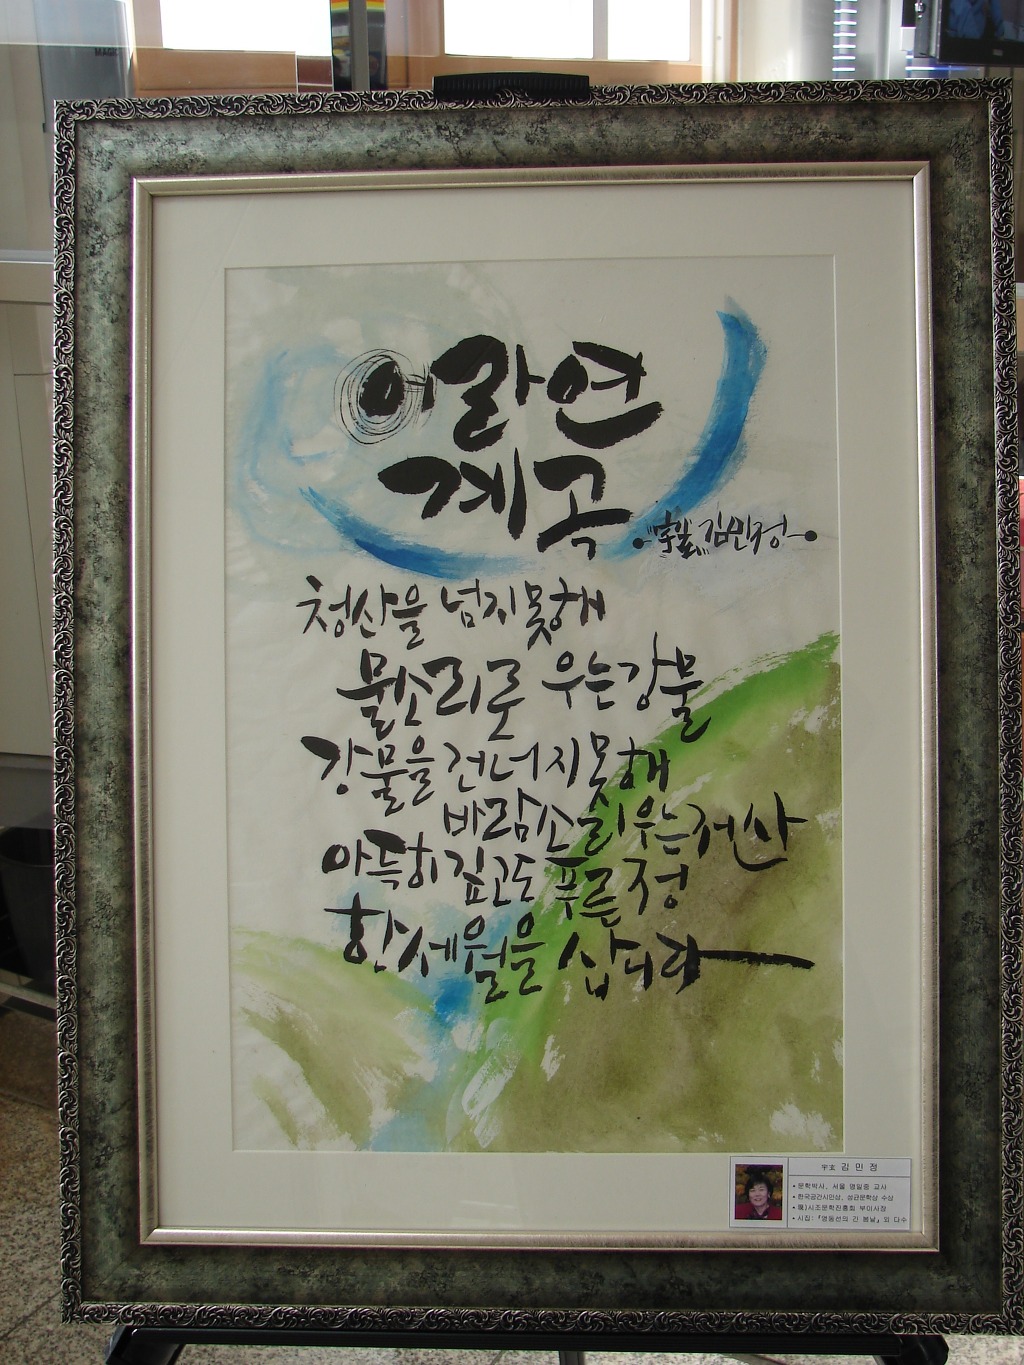 어라연
계곡
宇玄 김민정
청산을 넘지 못해
물소리로 우는 강물
강물을 건너지 못해
바람소리 우는 저 산
아득히 깊고도 푸른 정
한 세월을 삽니다
宇玄 김 민 정
• 문학박사, 서울 명일중 교사
• 한국공간시인상, 성균문학상 수상
• 시조문학진흥회 부이사장
• 시집: 『영동선의 긴 봄날』 외 다수